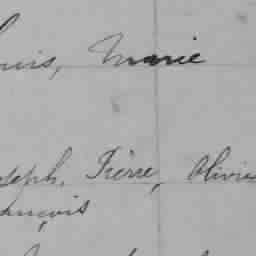 ouis, Marie
oseph, Pierre, Olivie
ançois